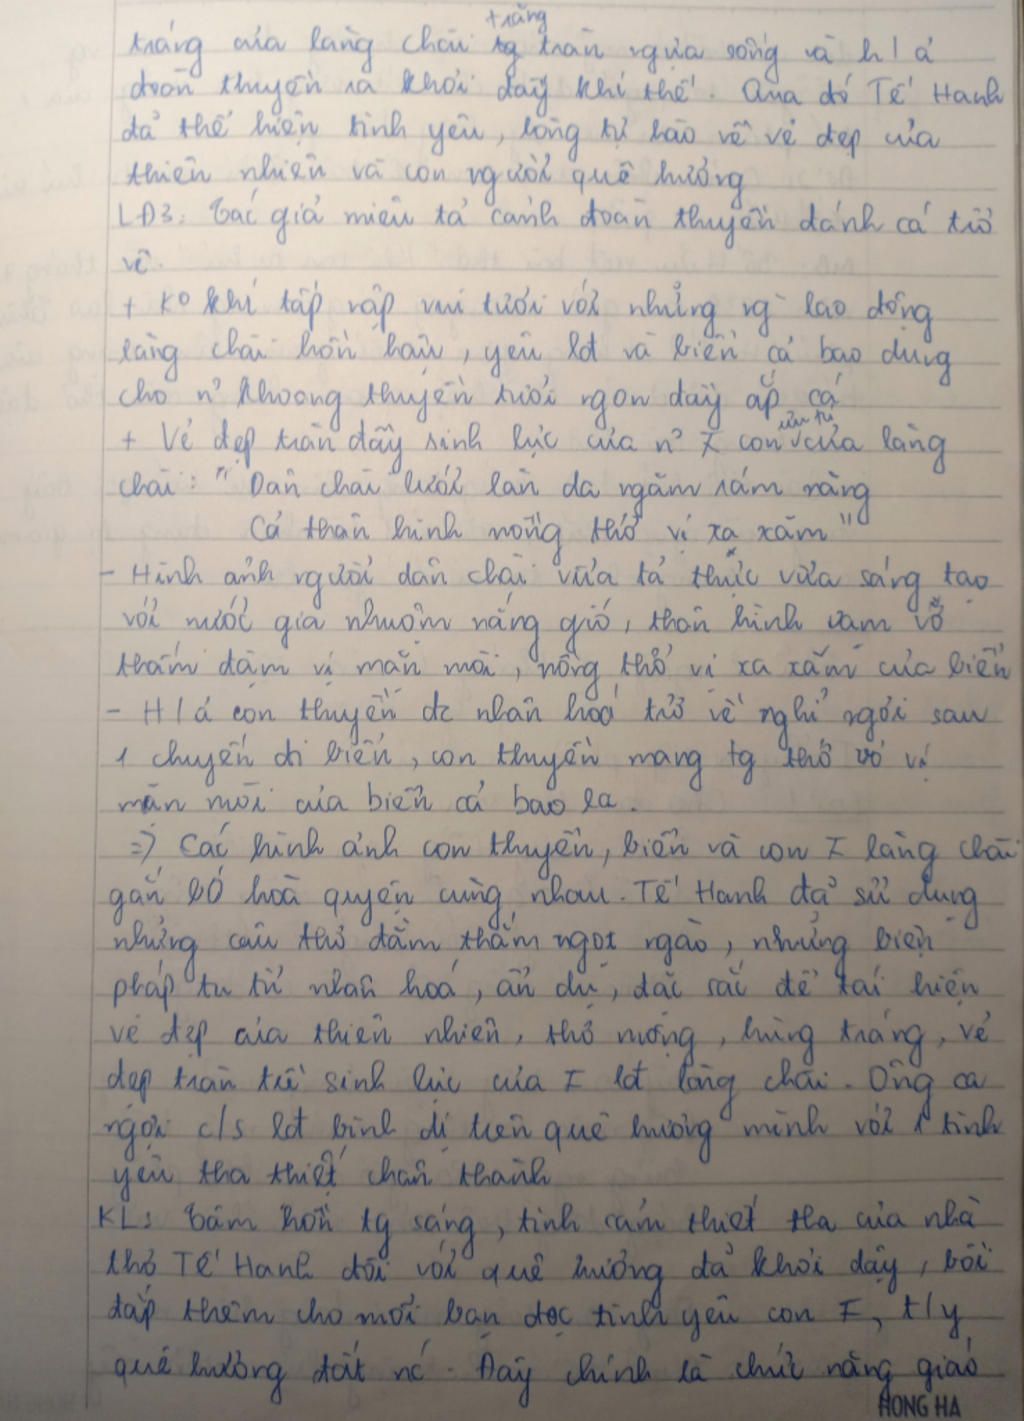 trăng
tráng của làng chài trăn ngựa sống và h/á
đoàn thuyền ra khơi đầy khí thế. Qua đó Tế Hanh
đã thể hiện tình yêu, lòng tự hào về vẻ đẹp của
thiên nhiên và con người quê hương
LĐ3: Tác giả miêu tả cảnh đoàn thuyền đánh cá trở
về.
+ Ko khí tấp nập vui tươi với những ng lao động
làng chài hồn hậu, yêu lđ và biển cả bao dung
cho n² khoong thuyền tươi ngon đầy ắp cá
+ Vẻ đẹp tràn đầy sinh lực của n² I con của làng
chài: "Dân chài lưới làn da ngăm rám nắng
Cả thân hình nồng thở vị xa xăm"
- Hình ảnh người dân chài vừa tả thực vừa sáng tạo
với nước gia nhuộm nắng gió, thân hình vam vỡ
thấm đậm vị mặn mòi, nồng thở vị xa xăm của biển
- H/á con thuyền đc nhân hoá trở về nghỉ ngơi sau
1 chuyến đi biển, con thuyền mang tg thở vỏ vị
mặn mòi của biển cả bao la.
=> Các hình ảnh con thuyền, biển và con I làng chài
gắn bó hoà quyện cùng nhau. Tế Hanh đã sử dụng
những câu thơ đằm thắm ngọt ngào, những biện
pháp tu từ nhân hoá, ẩn dụ, đặc sắc để tái hiện
vẻ đẹp của thiên nhiên, thơ mộng, hùng tráng, vẻ
đẹp tràn trề sinh lực của I lđ làng chài. Ông ca
ngợi c/s lđ bình dị trên quê hương mình với 1 tình
yêu tha thiết chân thành
KL: Tâm hồn tg sáng, tình cảm thiết tha của nhà
thơ Tế Hanh đối với quê hương đã khơi dậy, bồi
đắp thêm cho mỗi bạn đọc tình yêu con I, t/y
quê hương đất nc. Đây chính là chức năng giáo
HONG HA